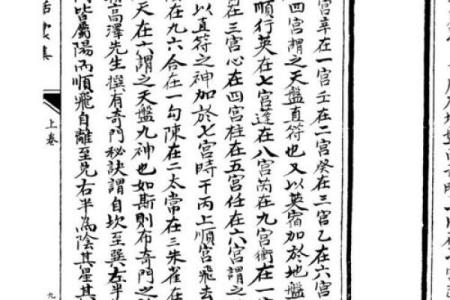 宫辛在一宫壬在二宫癸在三宫乙在六宫
四宫謂之天盤直符也又以英宿加於地盤
順行英在七宫蓬在八宫芮在九宫衝在一
三宫心在四宫柱在五宫任在六宫謂之
以直符之神加於七宫時干丙上順宫飛去
在九六合在一勾陳在二太常在三朱雀在
天在六謂之天盤九神也如斯則布奇門之
高澤先生撰有奇門秘訣謂自坎至巽左半
皆屬陽而順飛自離至兑右半為陰其星其
上卷
九